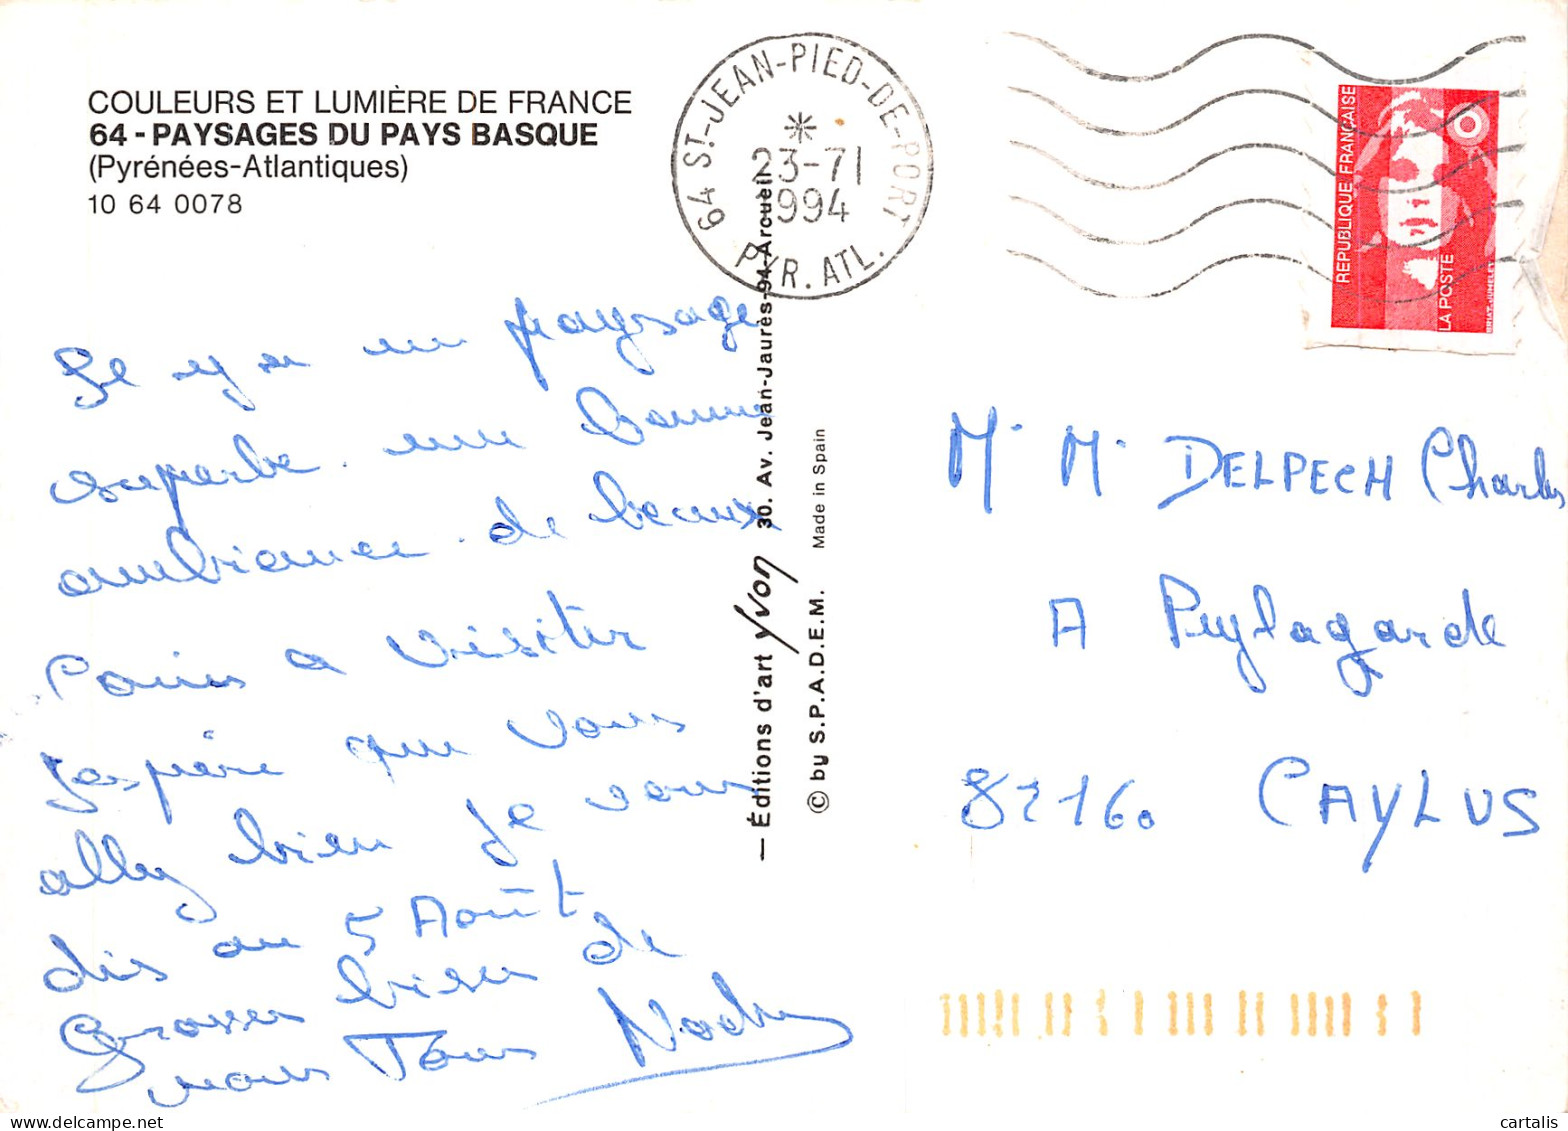 COULEURS ET LUMIÈRE DE FRANCE
64 - PAYSAGES DU PAYS BASQUE
(Pyrénées-Atlantiques)
10 64 0078
64 ST-JEAN-PIED-DE-PORT
23-7
1994
PYR. ATL.
RÉPUBLIQUE FRANÇAISE
LA POSTE
Il y a un paysage
superbe. une bonne
ambiance. de beaux
coins a visiter
j'espère que vous
allez bien je vous
dis au 5 Août
Grosses bises de
nous Tous
— Éditions d'art Yvon 30. Av. Jean-Jaurès-94-Arcueil
© by S.P.A.D.E.M. Made in Spain
Mr. M. DELPECH Charles
A Puylagarde
82160 CAYLUS
cartalis